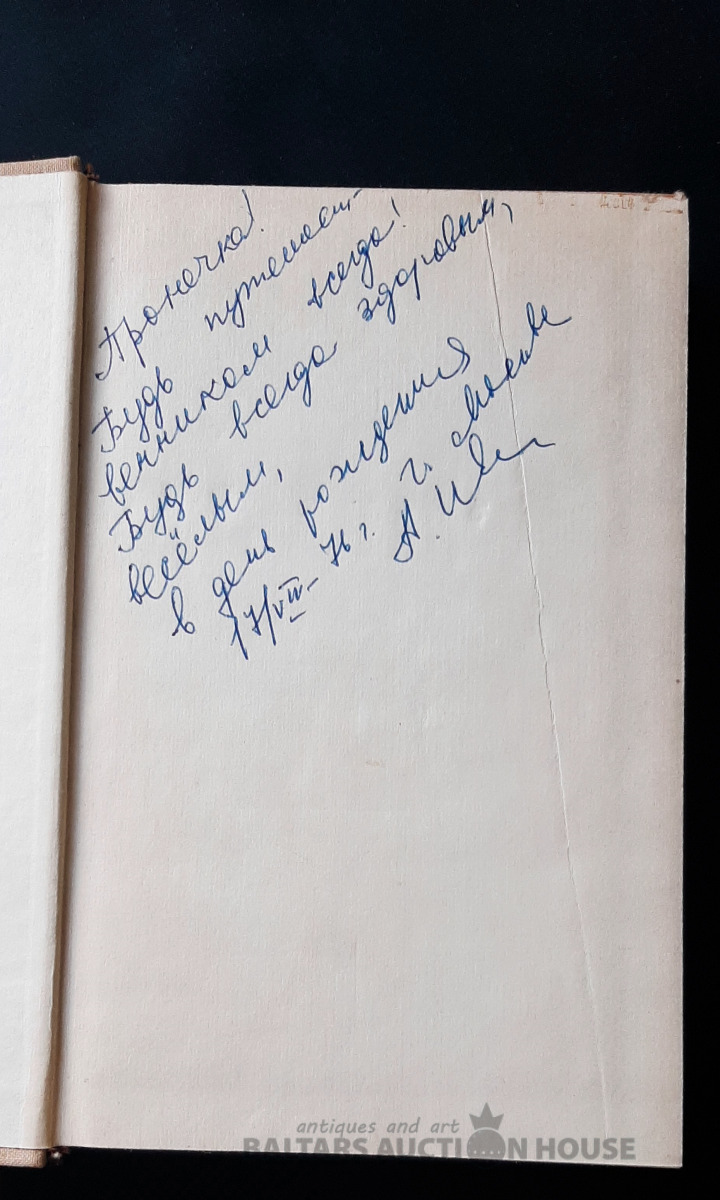 Пронечка!
Будь путешест-
венником всегда!
Будь всегда здоровым,
весёлым,
в день рождения
17/VIII- 76 г. г. Москве
А.
antiques and art
BALTARS AUCTION HOUSE